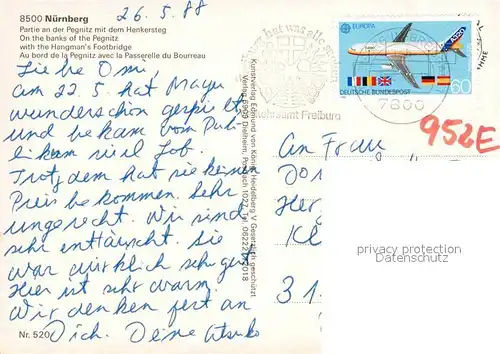 8500 Nürnberg
26.5.88
Partie an der Pegnitz mit dem Henkersteg
On the banks of the Pegnitz
with the Hangman's Footbridge
Au bord de la Pegnitz avec la Passerelle du Bourreau
Liebe Omi,
am 22.5 hat Mayu
wunderschön gespielt
und bekam vom Pub-
likum viel Lob.
Trotzdem hat sie keinen
Preis bekommen. Sehr
ungerecht. Wir sind
sehr enttäuscht. Sie
war wirklich sehr gut.
Hier ist sehr warm.
Wir denken fest an
Dich. Deine Atsuko
Nr. 520
Kunstverlag Edmund von König Heidelberg
Verlag 6909 Dielheim, Postfach 1027, Tel. 06222
Gesetzlich geschützt
hat was alle
Freiburg
7800
EUROPA
A320
DEUTSCHE BUNDESPOST
60
952E
An Frau
Do
Her
Kl
31
privacy protection